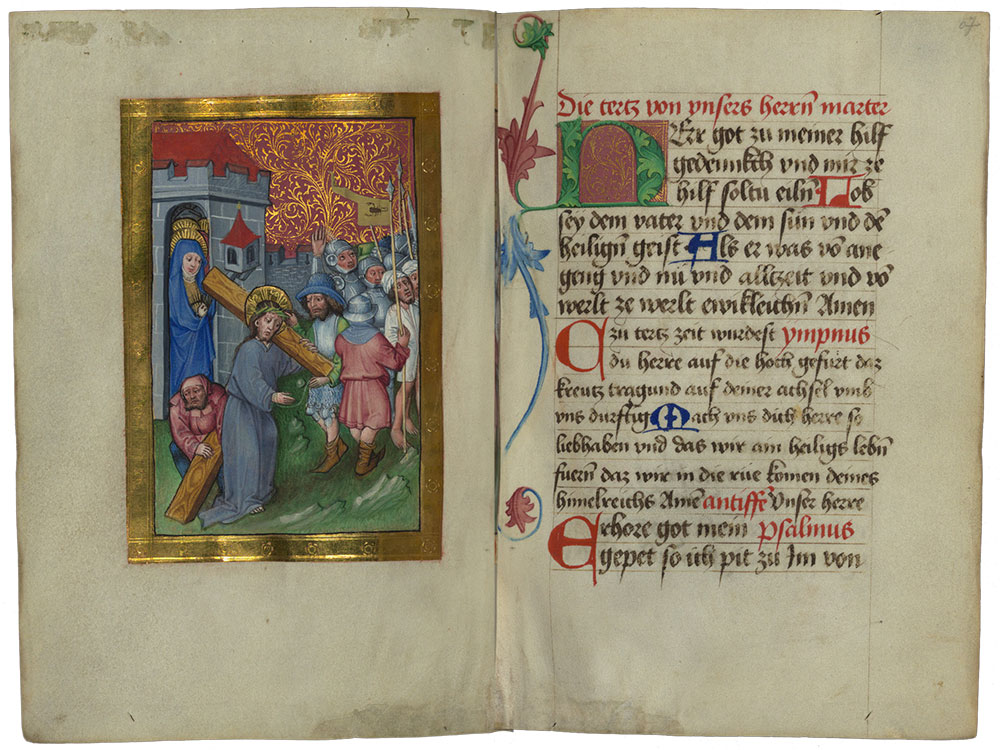 67
Die tertz von vnsers herrn̄ marter
HErr got zu meiner hilf
gedennkch vnd mir ze
hilf soltu eiln̄ Lob
sey dem vater vnd dem sun vnd dē
heilign̄ geist Als er was vō ane
geng vnd nū vnd alltzeit vnd vō
werlt ze werlt ewikleichn̄ Amen
Czu tertz zeit wurdest ympnus
du herre auf die hoch gefürt daz
kreutz tragund auf deiner achsel vmb
vns durftig Mach vns dich herre so
liebhaben vnd das wir ain heiligs lebn̄
fuern̄ daz wir in die rüe komen deines
himelreichs Amē antiffē Vnser herre
Erhore got mein psalmus
gepet so ich pit zu Im von